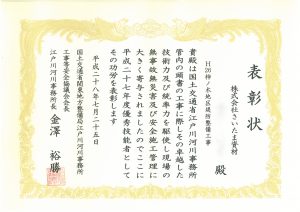 表彰状
H26椿ノ木地区堤防整備工事
株式会社さいたま資材
殿
貴殿は国土交通省江戸川河川事務所
管内の頭書の工事に際しその卓越した
技術力及び統率力を駆使し現場の
無事故無災害及び安全施工管理に
大きく寄与されましたのでここに
平成二十七年度優秀技能者として
その功労を表彰します
平成二十八年七月二十五日
国土交通省関東地方整備局江戸川河川事務所
工事等安全協議会会長
江戸川河川事務所長 金澤 裕勝